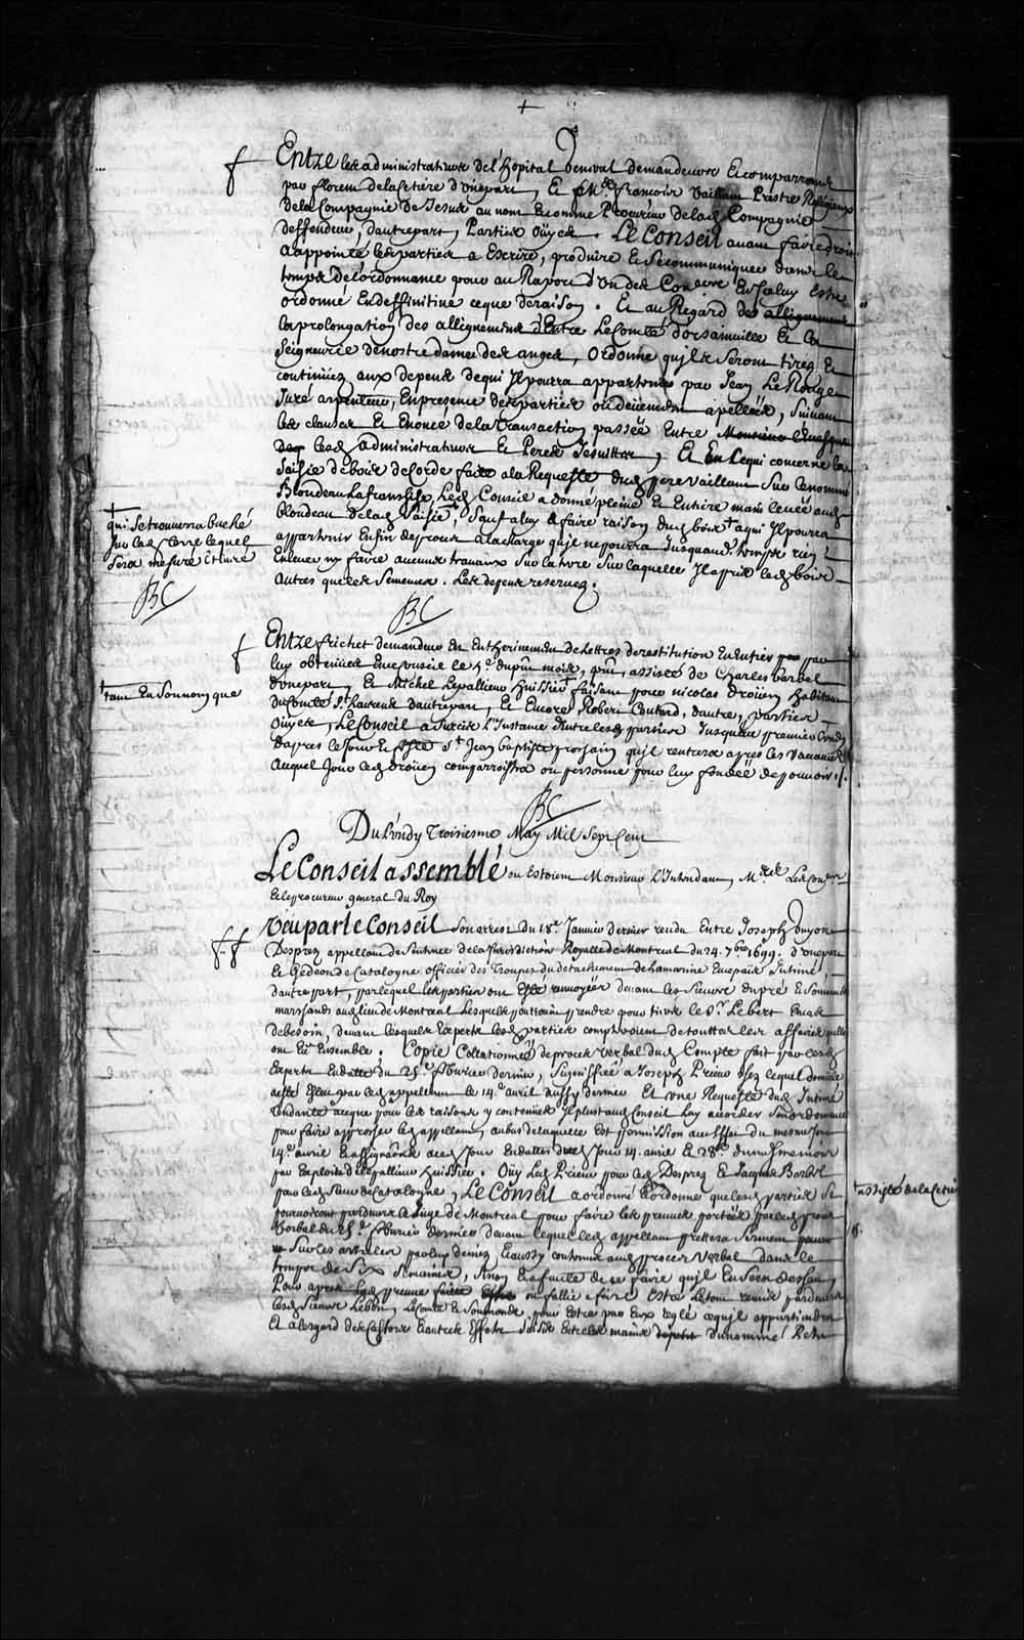 Entre les administrateurs de l'hopital General demandeurs et comparans
par florent delacetiere d'une part, Et Me françois Vaillant Prestre Religieux
dela Compagnie de Jesus au nom et comme Procureur de lad Compagnie
deffendeur, dautre part, Parties Oüyes. Le Conseil avant faire droit
a appointé les parties a Escrire, produire et se communiquer dans le
temps de l'ordonnance pour au Raport d'un des Coners En Celuy Estre
ordonné En deffinitive ce que de raison. Et au Regard des allignemens
la prolongation des allignemens d'Entre Le Comté d'orsainville et la
seigneurie de nostre dame des anges, Ordonne qu'jls seront tirez et
continuez aux depens de qui Jl pourra appartenir par Jean Le Rouge
Juré arpenteur, En presence des parties ou deüement apellées, suivant
les clauses et Enoncé de la transaction passée Entre Monsieur l'Evesque
lesd administrateurs et Peres Jesuittes, Et En Ce qui concerne la
saisie de bois de corde faite a la Requeste dud pere vaillant sur le nommé
Blondeau Lafranchise, Led Conseil a donné pleine et Entiere main levée aud
blondeau de lad saisie, sauf a luy a faire raison dud bois † a qui Jl pourra
appartenir Enfin de procez a la charge qu'jl ne pourra Jusqu'aud. temps rien
Enlever ny faire aucuns travaux sur la terre sur laquelle Jl a pris led bois
autres que les semences. Les depens reservez.
†
qui se trouvera buché
sur lad terre lequel
sera mesuré Et livré
BC
BC
Entre frichet demandeur En Entherinement de Lettres de restitution En Entier par
luy obtenues En cousie le 5e du pnt mois, pnt, assisté de Charles barbel
d'une part, Et Michel Lepallieur huissier † faisant pour nicolas droüin habitant
du Comté St Laurent d'autre part, Et Encore Robert Coutard, dautre, parties
Oüyes, Le Conseil a surcis l'Instance d'Entre lesd parties Jusqu'au premier Lundy
d'apres le jour et feste St Jean baptiste prochain qu'jl rentrera apres les vacances
Auquel Jour led droüin comparroistra ou personne pour luy fondée de pouvoir.
† tant En son nom que
BC
Du Lündy Troisiesme May Mil Sept Cent
Le Conseil assemblé ou Estoient Monsieur L'Intendant, Mrs Les Coners
Et le procureur general du Roy
Veu par le Conseil son arrest du 18e Janvier dernier rendu Entre Joseph Guyon
Desprez appellant de sentence de la Jurisdiction Royalle de Montreal du 24. 7bre 1699. d'une part
Et Gedeon de Catalogne officier des Troupes du detachement de la marine En ce païs Intimé,
d'autre part, par lequel les parties ont Esté renvoyées devant les sieurs dupré Et Soumande
marchands aud lieu de Montreal Lesquels pourroient prendre pour tiers le Sr Lebert En cas
de besoin, devant lesquels Experts lesd parties compteroient de touttes les affaires qu'elles
ont Eu Ensemble. Copie Collationnée de procez verbal dud Compte fait par lesd
Experts En datte du 25e fevrier dernier, signiffiée a Joseph Prieur chez lequel domicile
a esté Esleu par led appellant le 14e avril aussy dernier Et une Requeste dud Intimé
tendante a ce que pour les raisons y contenües Jl plust aud Conseil luy accorder son ordonnance
pour faire approcher led appellant, au bas de laquelle Est permission a cet Effet du mesme jour
14e avril
par Exploit de lepallieur huissier. Oüy Led Prieur pour led Desprez Et Jacques Barbel
pour led sieur de Catalogne, Le Conseil a ordonné Et ordonne que lesd parties se
pourvoiront pardevant le Juge de Montreal pour faire les preuves portées par led procez
verbal du 25e fevrier dernier devant lequel led appellant prettera serment
sur les articles par luy deniez Et aussy contenus aud procez verbal dans le
temps de six semaines, sinon Et a faute de ce faire qu'jl En sera deschu,
Pour apres lad preuve faite ou faillie a faire Estre le tout remis pardevant
lesd sieurs Lebert, Lecomte Et Soumande, pour Estre par Eux reglé ce qu'jl appartiendra
Et a l'egard des Castors Et autres Effets saisis Entre les mains du nommé Petit
† assisté de la Cetiere